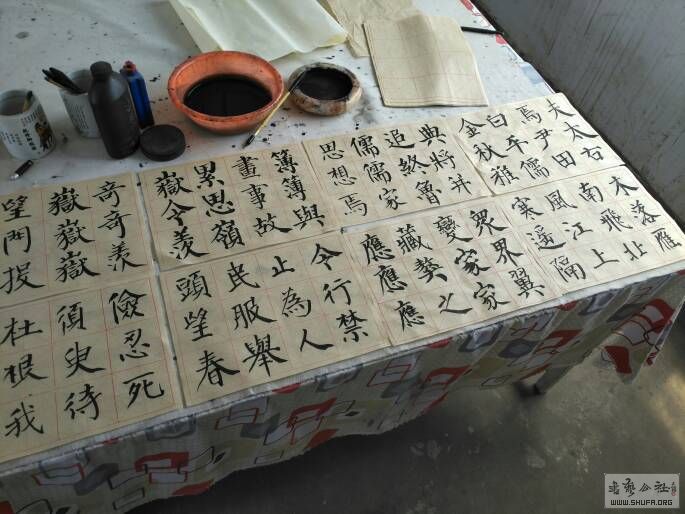 夫太右
焉尹田
白平儒
金秋雅
典將并
追終魯
儒儒家
思想焉
簿簿與
畫事故
累思嶺
嶽令羨
奇奇羨
嶽嶽嶽
望門投
木落雁
南飛北
風江上
寒遥隔
衆界翼
變家家
藏藝之
應應應
令行禁
止為人
民服舉
頭望春
儉忍死
須臾待
杜根我
書藝公社
WWW.SHUFA.ORG